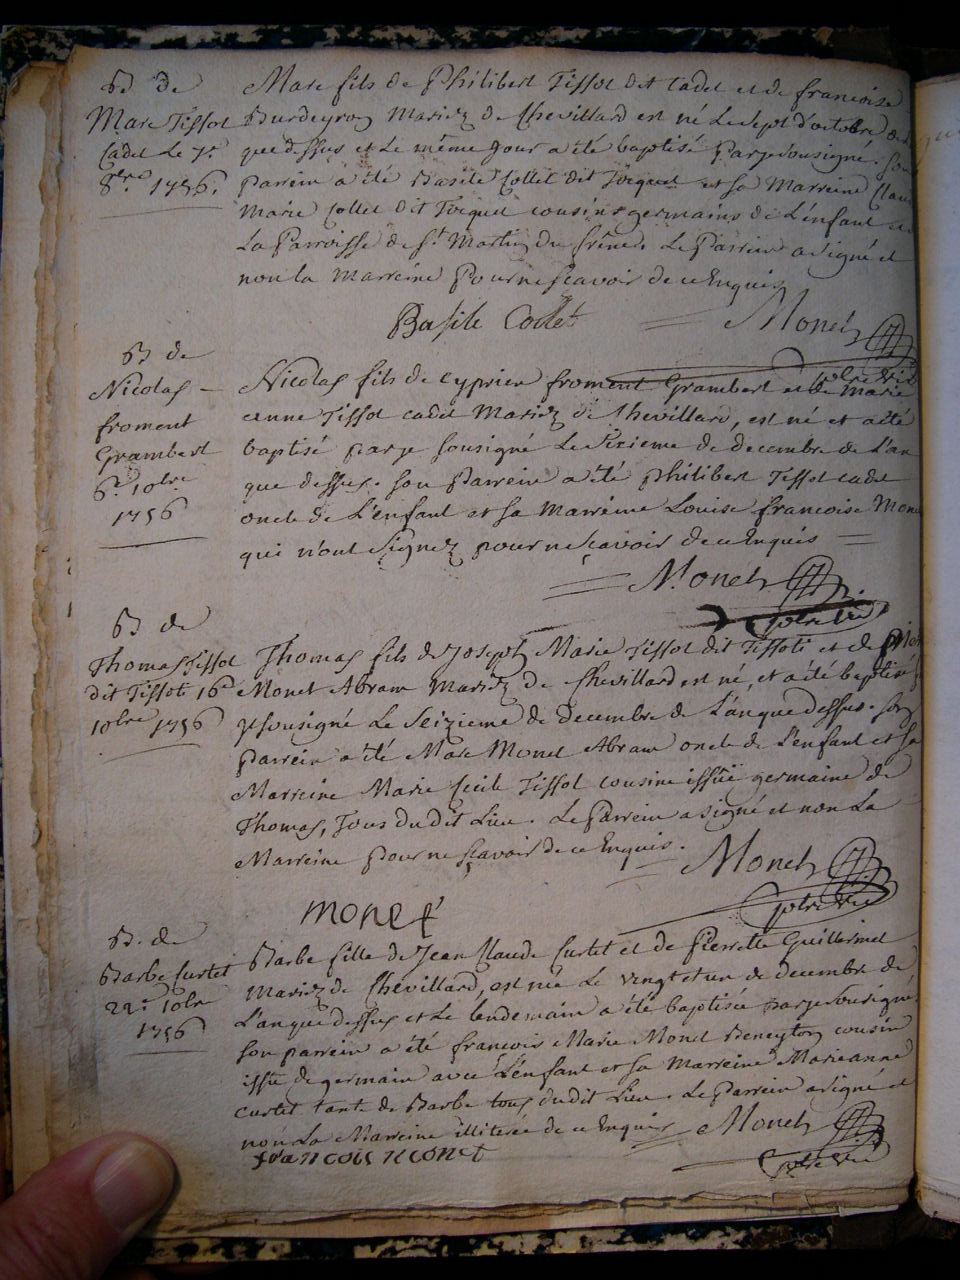 B de
Marc Tissot
Cadet Le 7e
8bre 1756.
Marc fils de Philibert Tissot dit Cadet et de francoise
Burdeyron Mariez de Chevillard est né Le sept d'octobre de
que dessus et Le même jour a été baptisé par je sousigné. Son
parrein a été Basile Collet dit Turquet et sa Marreine Clau
Marie Collet dit Turquet cousins germains de L'enfant
La Parroisse de St Martin Du frêne. Le Parrein a signé et
non la Marreine pour ne scavoir de ce Enquis
Basile Collet Monet
B de
Nicolas
froment
Grambert
6e 10bre
1756
Nicolas fils de Cyprien froment Grambert et de marie
anne Tissot cadet Mariez de Chevillard, est né et a été
baptisé par je sousigné Le Sixieme de decembre de L'an
que dessus. son Parrein a été Philibert Tissot cadet
oncle de L'enfant et sa Marreine Louise francoise Mone
qui n'ont signez pour ne scavoir de ce Enquis
Monet
B de
Thomas Tissot
dit Tissoti 16e
10bre 1756
Thomas fils de Joseph Marie Tissot dit Tissoti et de
Monet Abram Mariez de Chevillard est né, et a été baptisé
je sousigné Le Seizieme de decembre de L'an que dessus. son
parrein a été Marc Monet Abram oncle de L'enfant et sa
Marreine Marie Cecile Tissot cousine issüe germaine de
Thomas, Tous du dit Lieu. Le Parrein a signé et non La
Marreine pour ne sçavoir de ce Enquis.
Monet
monet
B. de
Barbe Curtet
22e 10bre
1756
Barbe fille de Jean Claude Curtet et de Pierrette Guillermet
Mariez de Chevillard, est née Le vingt et un de decembre de
L'an que dessus et Le lendemain a été baptisée par je sousigné
son parrein a été francois Marie Monet Beneyton cousin
issu de germain avec L'enfant et sa Marreine Marieanne
curtet tante de Barbe tous du dit Lieu. Le Parrein a signé et
non La Marreine illiterée de ce Enquis Monet
francois monet